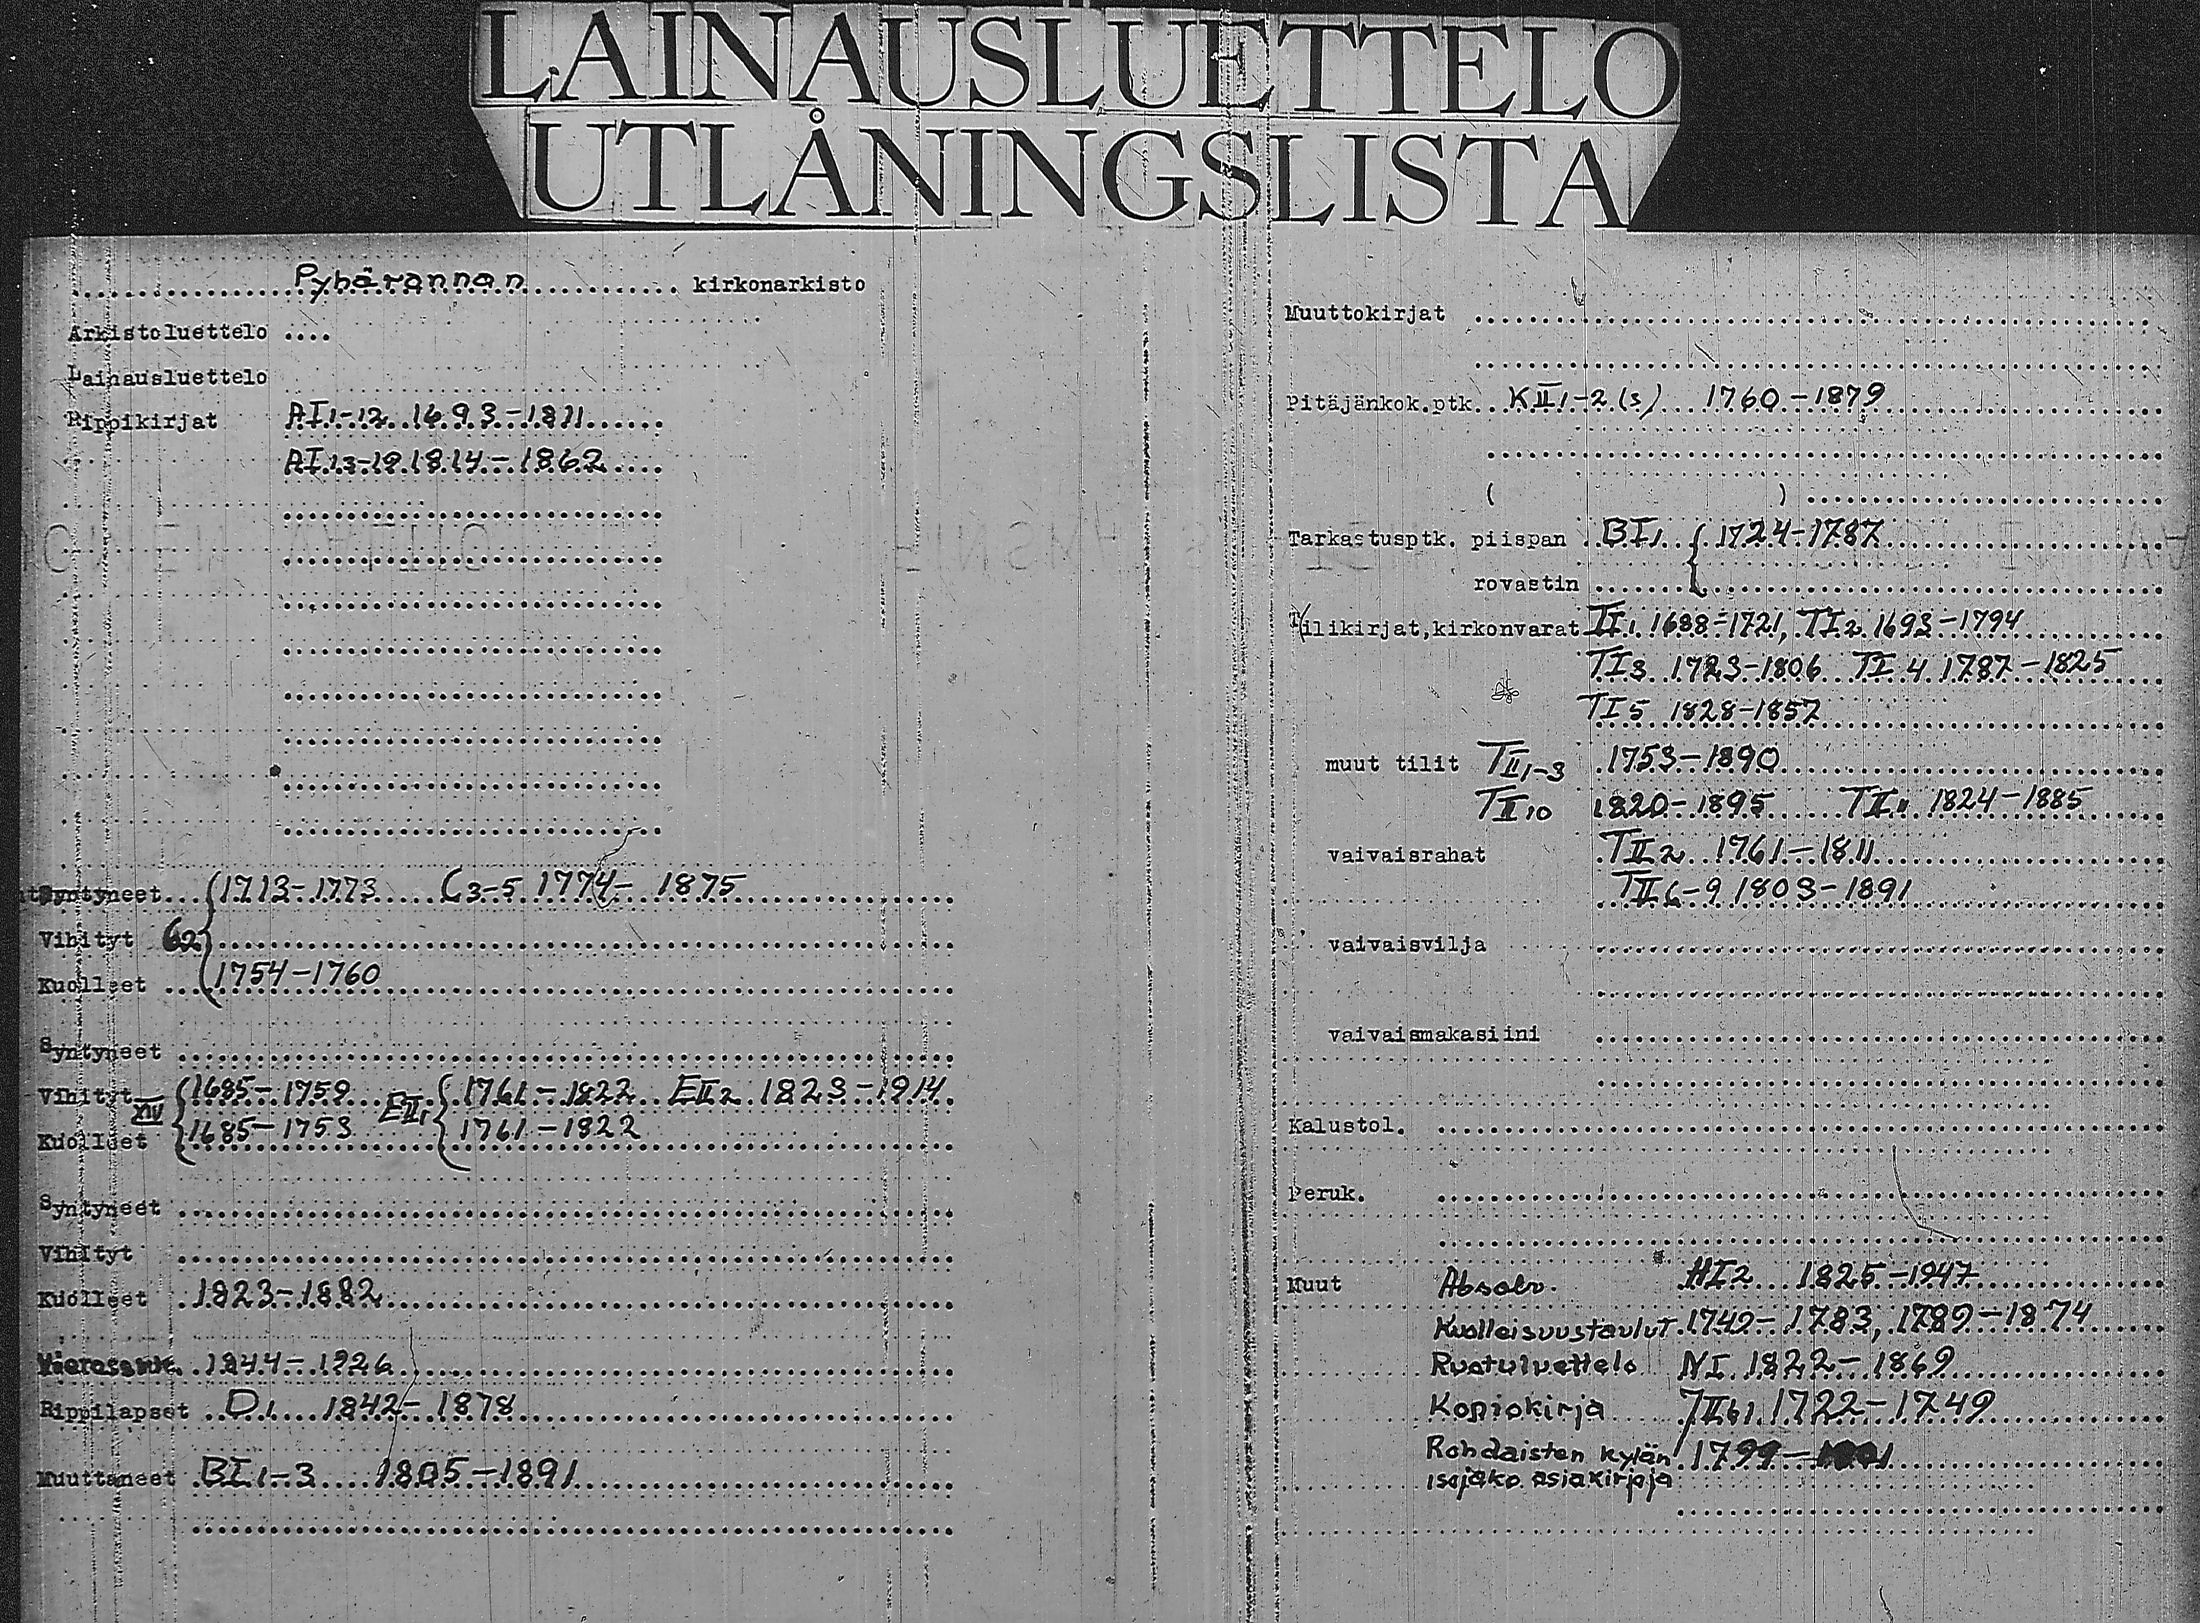 LAINAUSLUETTELO
UTLÅNINGSLISTA
Pyhärannan kirkonarkisto
Arkistoluettelo
Lainausluettelo
Rippikirjat AI1-12 1693-1811
AI13-19 1814-1862
Syntyneet 1713-1773 C3-5 1774-1875
Vihityt
Kuolleet 1754-1760
Syntyneet
Vihityt 1685-1759 EII1 1761-1822 EII2 1823-1914
Kuolleet 1685-1753 1761-1822
Syntyneet
Vihityt
Kuolleet 1823-1882
1844-1926
Rippilapset D1 1842-1878
Muuttaneet BI1-3 1805-1891
Muuttokirjat
Pitäjänkok.ptk. KII1-2(s) 1760-1879
( )
Tarkastusptk. piispan BI1 1724-1787
rovastin
Tilikirjat,kirkonvarat TI1 1688-1721, TI2 1693-1794
TI3 1723-1806 TI4 1787-1825
TI5 1828-1857
muut tilit TII1-3 1753-1890
TII10 1820-1895 TII11 1824-1885
vaivaisrahat TII2 1761-1811
TII6-9 1803-1891
vaivaisvilja
vaivaismakasiini
Kalustol.
Peruk.
Muut Absolv. HI2 1825-1947
Kuolleisuustaulut 1749-1783, 1789-1874
Ruotuluettelo NI 1822-1869
Kopiokirja 1722-1749
Rohdaisten kylän 1799-
isojako asiakirjoja